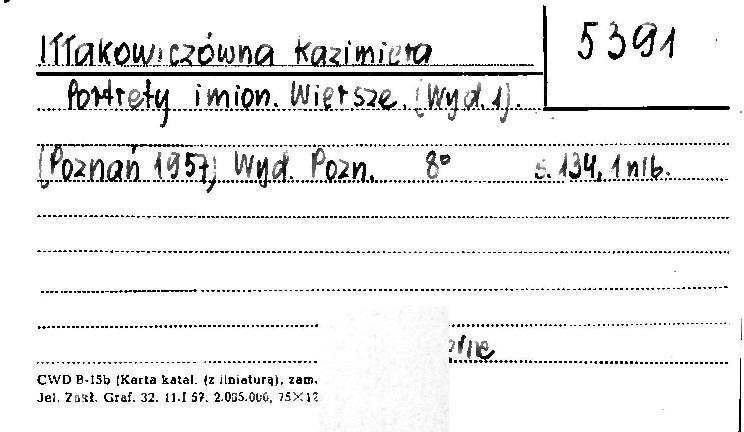 Iłłakowiczówna Kazimiera
5391
Portrety imion. Wiersze. (Wyd. 1).
[Poznań 1957] Wyd. Pozn. 8° s. 134, 1 nlb.
CWD B-15b (Karta katal. (z liniaturą), zam.
Jel. Zakł. Graf. 32. 11.I 57. 2.085.000, 75×12